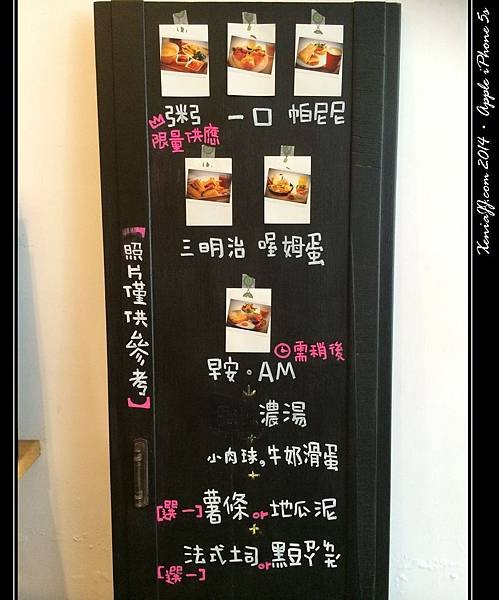 粥 一口 帕尼尼
限量供應
三明治 喔姆蛋
【照片僅供參考】
需稍後
早安。AM
濃湯
+
小肉球。牛奶滑蛋
+
[選一]薯條or地瓜泥
+
法式土司or黑豆
[選一]
Xeniaff.com 2014 · Apple iPhone 5s